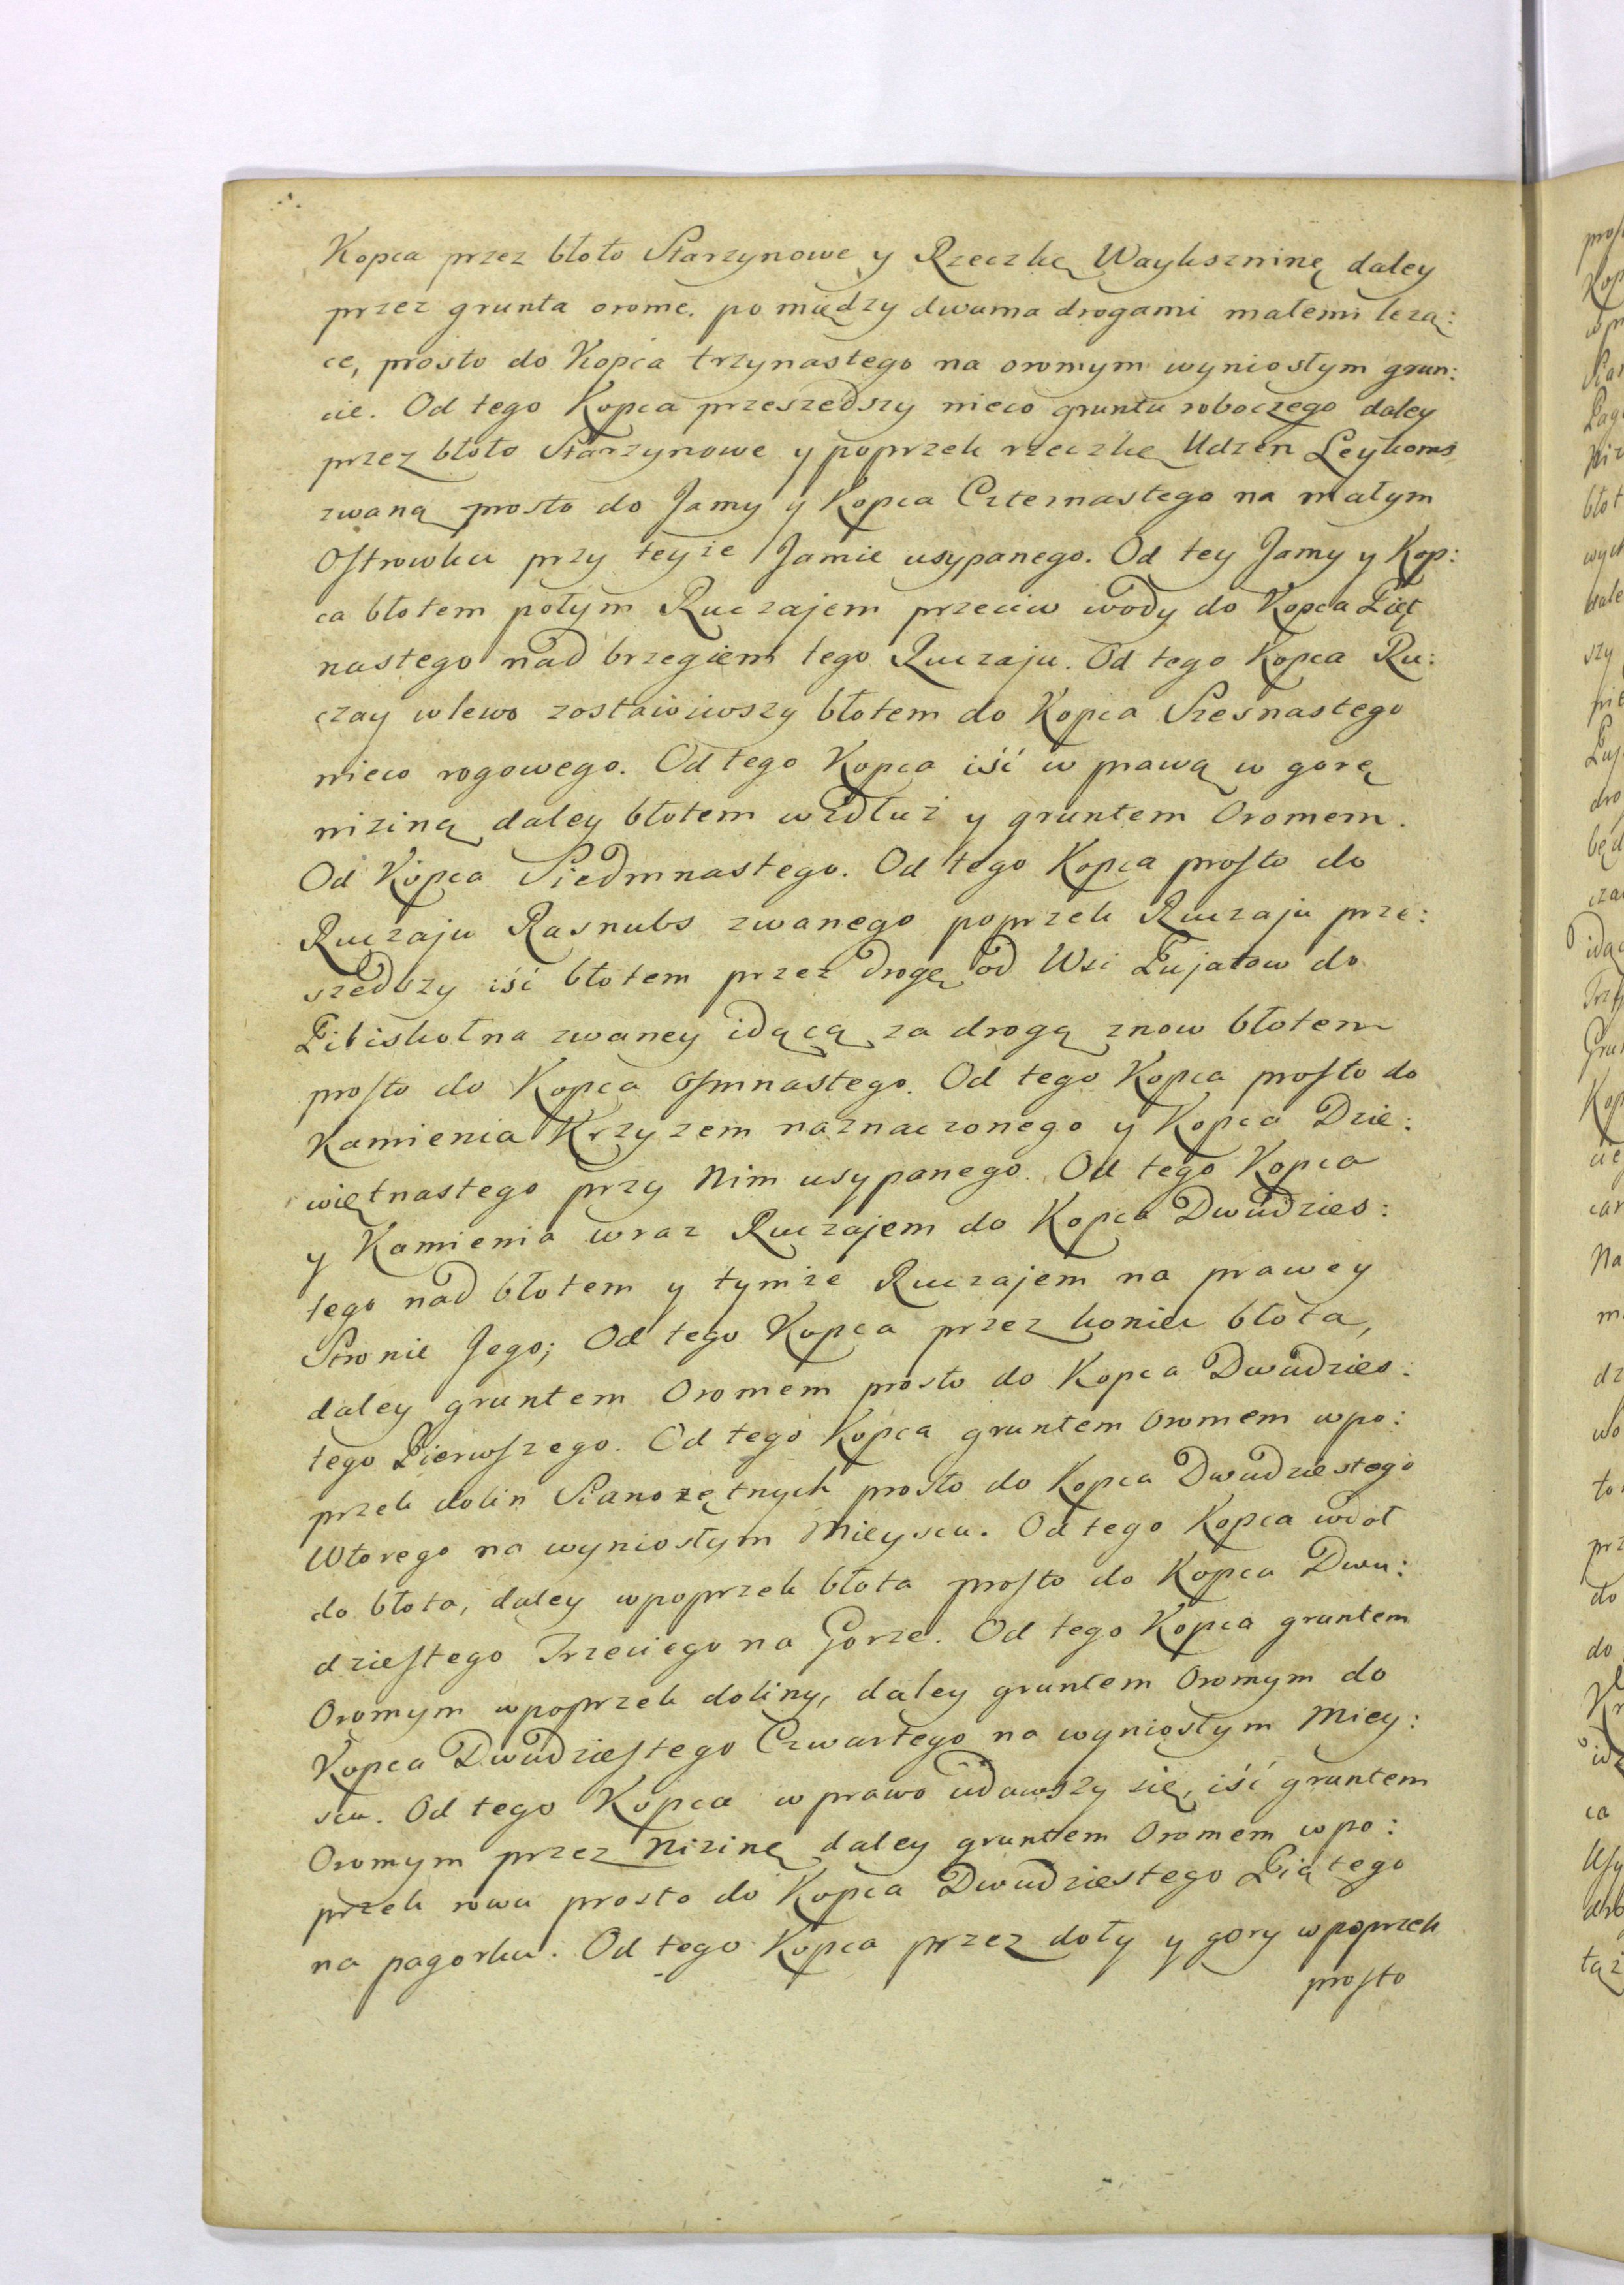 Kopca przez błoto Starzynowe y Rzeczkę Waykszninę daley
przez grunta orome. pomiędzy dwuma drogami małemi leżą:
ce, prosto do Kopca trzynastego na oromym wyniosłym grun:
cie. Od tego Kopca przeszedszy nieco gruntu roboczego daley
przez błoto Starzynowe y poprzek rzeczkę Udzen Leykoms
zwaną prosto do Jamy y Kopca Czternastego na małym
Ostrowku przy teyże Jamie usypanego. Od tey Jamy y Kop:
ca błotem połym Ruczajem przeciw wody do Kopca Pięt
nastego nad brzegiem tego Ruczaju. Od tego Kopca Ru:
czay wlewo zostawiwszy błotem do Kopca Szesnastego
nieco rogowego. Od tego Kopca iść w prawą w gorę
niziną daley błotem wzdłuż y gruntem Oromem.
Od Kopca Siedmnastego. Od tego Kopca prosto do
Ruczaju Rasnubs zwanego poprzek Ruczaju prze:
szedszy iść błotem przez drogę od Wsi Pujatow do
Pibiskolna zwaney idącą za drogą znow błotem
prosto do Kopca Osmnastego. Od tego Kopca prosto do
Kamienia Krzyzem naznaczonego y Kopca Dzie:
więtnastego przy Nim usypanego. Od tego Kopca
y Kamienia wraz Ruczajem do Kopca Dwudzies:
tego nad błotem y tymże Ruczajem na prawey
Stronie Jego; Od tego Kopca przez koniec błota,
daley gruntem Oromem prosto do Kopca Dwudzies:
tego Pierwszego. Od tego Kopca gruntem Oromem wpo:
przek dolin Sianożętnych prosto do Kopca Dwudziestego
Wtorego na wyniosłym Mieyscu. Od tego Kopca wdoł
do błota, daley wpoprzek błota prosto do Kopca Dwu:
dziestego Trzeciego na Gorze. Od tego Kopca gruntem
Oromym wpoprzek doliny, daley gruntem Oromym do
Kopca Dwudziestego Czwartego na wyniosłym Miey:
scu. Od tego Kopca w prawo udawszy się, iść gruntem
Oromym przez Nizinę daley gruntem Oromem wpo:
przek rowu prosto do Kopca Dwudziestego Piątego
na pagorku. Od tego Kopca przez doły y gory wpoprzek
prosto